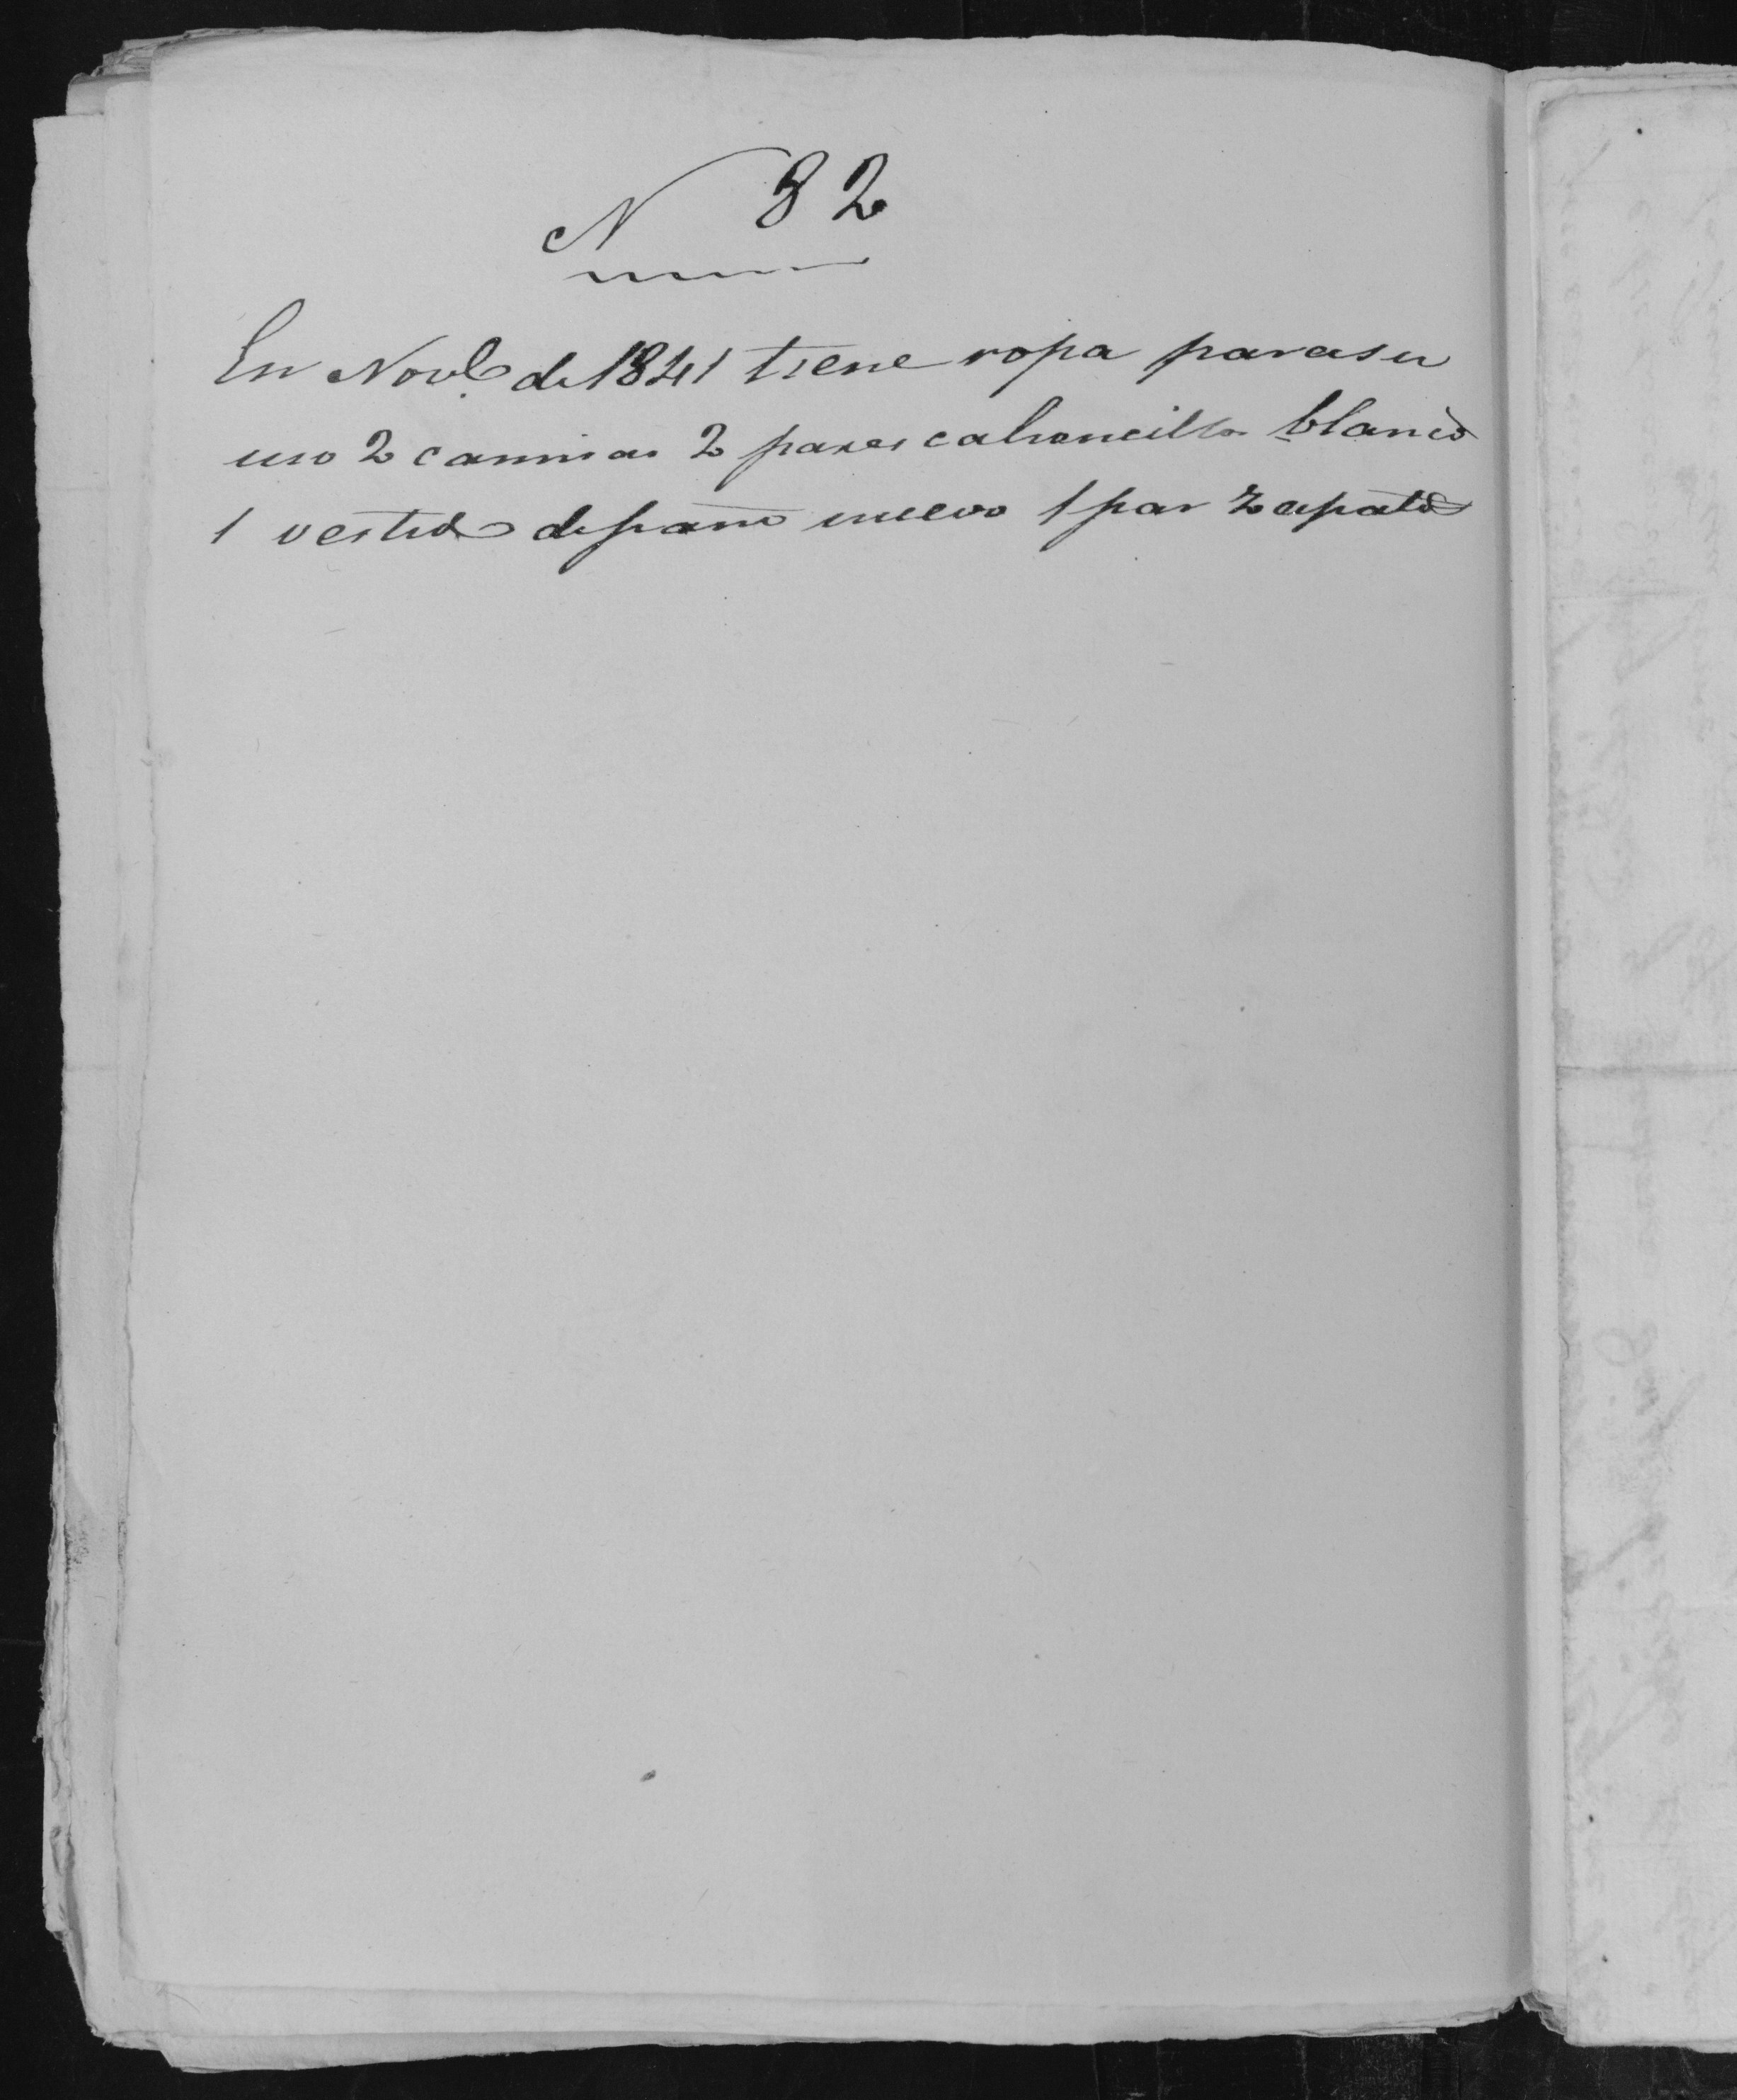 N 82
En Novbe. de 1841 tiene ropa para su
uso 2 camisas 2 pares calsoncillos blancos
1 vestido de paño nuevo 1 par zapatos